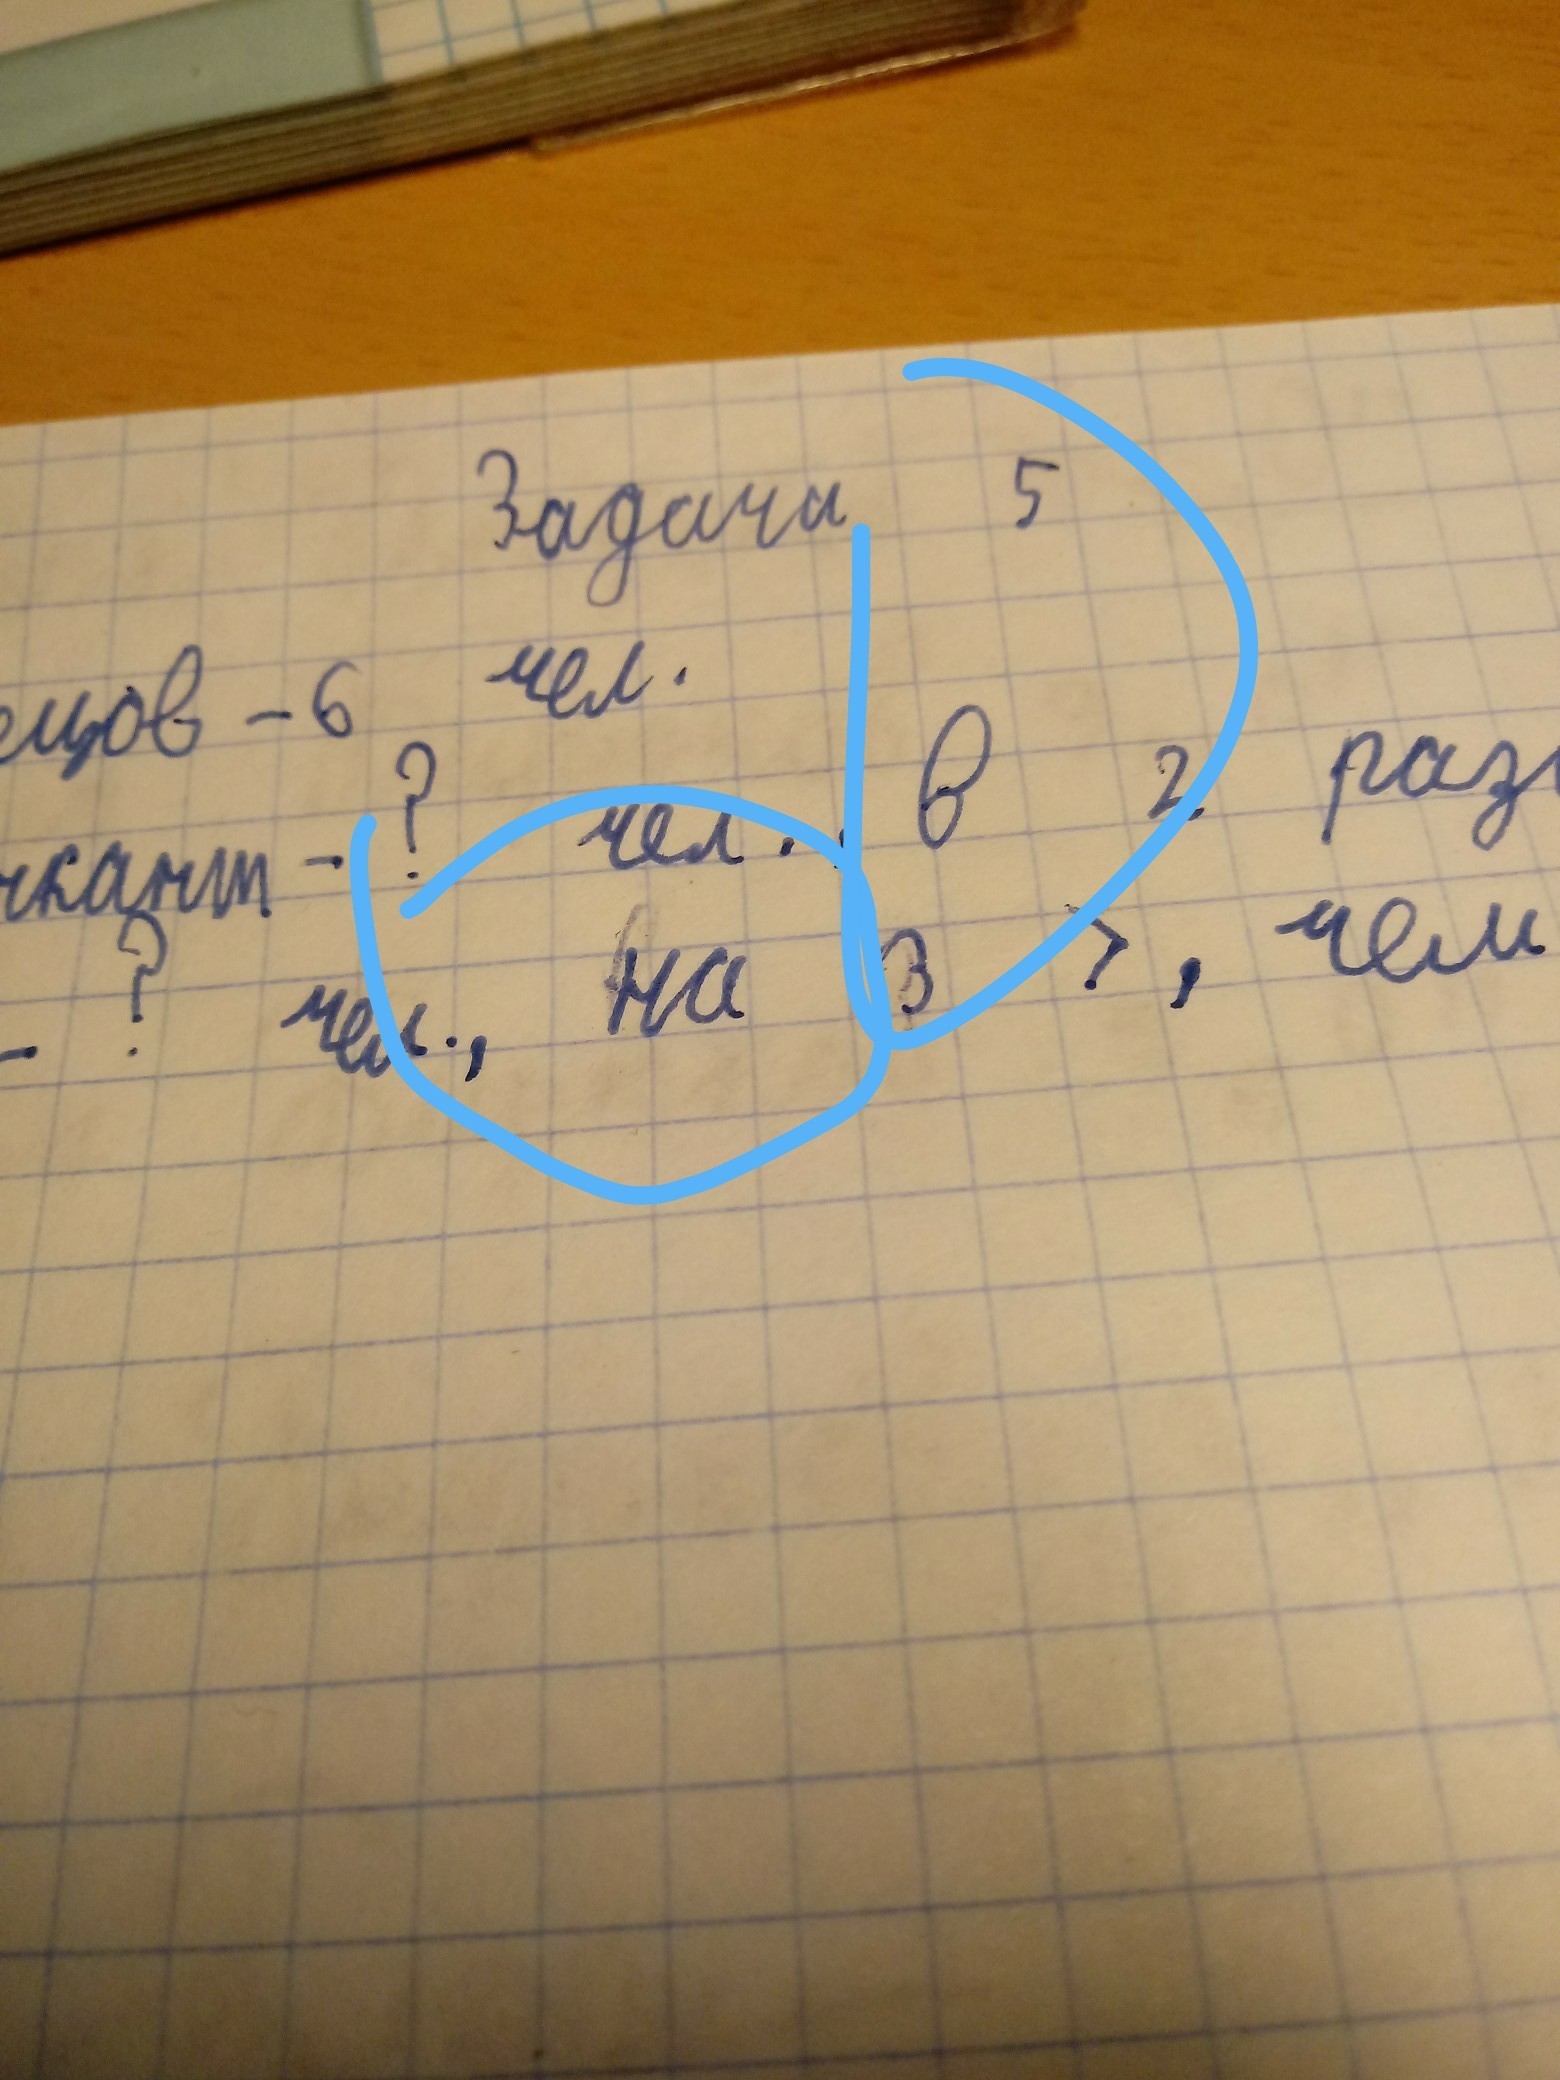 Задача 5
ецов - 6 чел.
чкант - ? чел., в 2 раз
- ? чел., на 3 >, чем